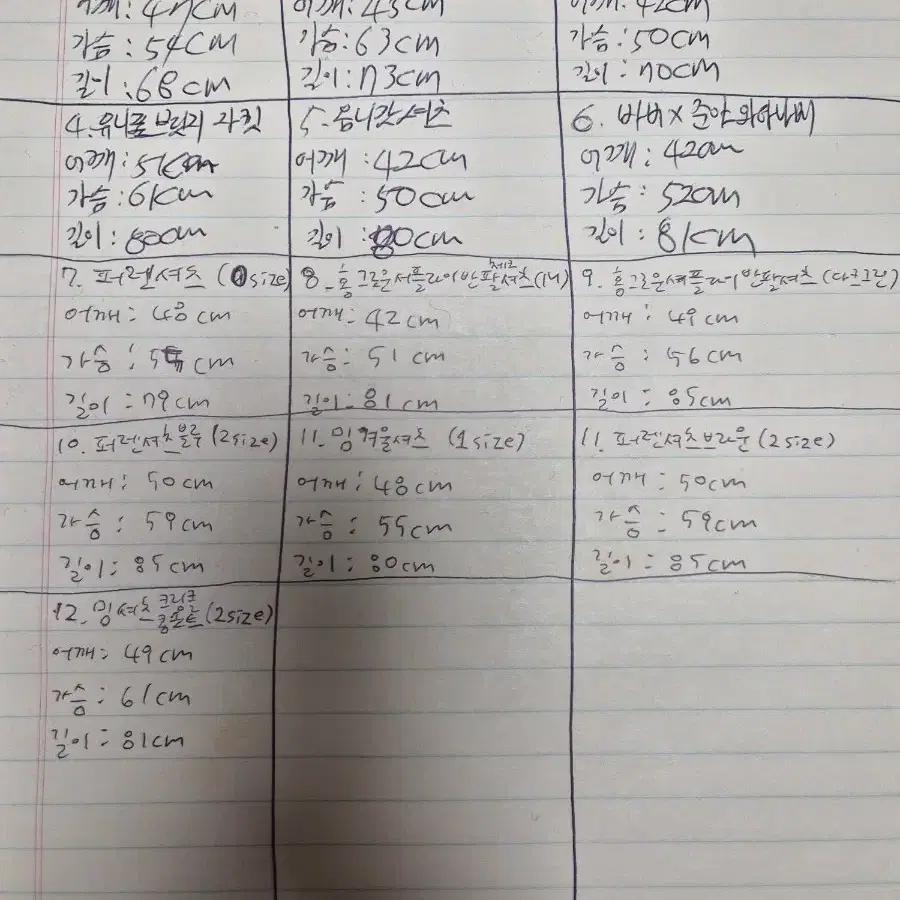 어깨: 47cm
가슴: 54cm
길이: 68cm
어깨: 45cm
가슴: 63cm
길이: 73cm
어깨: 42cm
가슴: 50cm
길이: 70cm
4. 유니폼브릿지 자켓
어깨: 51cm
가슴: 61cm
길이: 80cm
5. 옴니갓셔츠
어깨: 42cm
가슴: 50cm
길이: 80cm
6. 바버 x 준야 와타나베
어깨: 42cm
가슴: 52cm
길이: 81cm
7. 퍼렌셔츠 (1size)
어깨: 48cm
가슴: cm
길이: 79cm
8. 홍그로운서플라이반팔셔츠 체크
어깨: 42cm
가슴: 51cm
길이: 81cm
9. 홍그로운서플라이반팔셔츠 (다크그린)
어깨: 49cm
가슴: 56cm
길이: 85cm
10. 퍼렌셔츠블루 (2size)
어깨: 50cm
가슴: 59cm
길이: 85cm
11. 밍겨울셔츠 (1size)
어깨: 48cm
가슴: 55cm
길이: 80cm
11. 퍼렌셔츠브라운 (2size)
어깨: 50cm
가슴: 59cm
길이: 85cm
12. 밍셔츠 (2size)
어깨: 49cm
가슴: 61cm
길이: 81cm